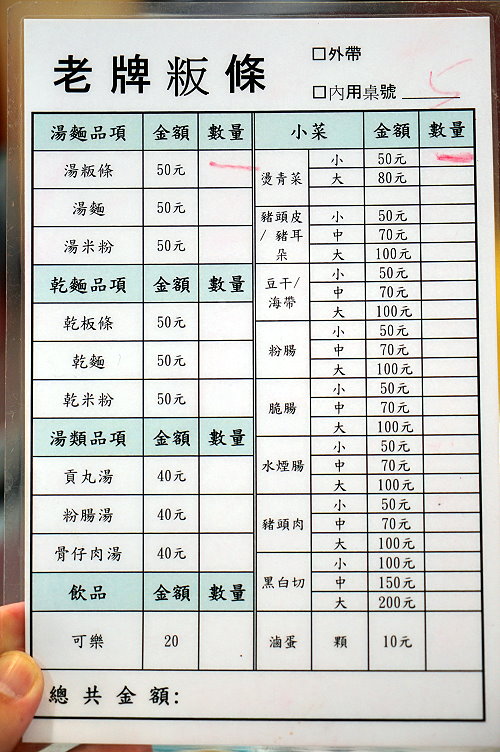 老牌粄條
□外帶
□內用桌號 5
湯麵品項 金額 數量
湯粄條 50元
湯麵 50元
湯米粉 50元
乾麵品項 金額 數量
乾板條 50元
乾麵 50元
乾米粉 50元
湯類品項 金額 數量
貢丸湯 40元
粉腸湯 40元
骨仔肉湯 40元
飲品 金額 數量
可樂 20
小菜 金額 數量
燙青菜 小 50元
大 80元
豬頭皮/豬耳朵 小 50元
中 70元
大 100元
豆干/海帶 小 50元
中 70元
大 100元
粉腸 小 50元
中 70元
大 100元
脆腸 小 50元
中 70元
大 100元
水煙腸 小 50元
中 70元
大 100元
豬頭肉 小 50元
中 70元
大 100元
黑白切 小 100元
中 150元
大 200元
滷蛋 顆 10元
總共金額: